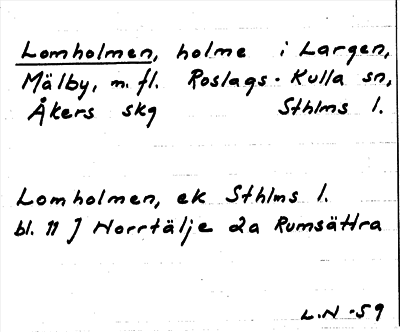 Lomholmen, holme i Largen,
Mälby, m. fl. Roslags-Kulla sn,
Åkers skg Sthlms l.
Lomholmen, ek Sthlms l.
bl. 11 J Norrtälje 2a Rumsättra
L.N -59